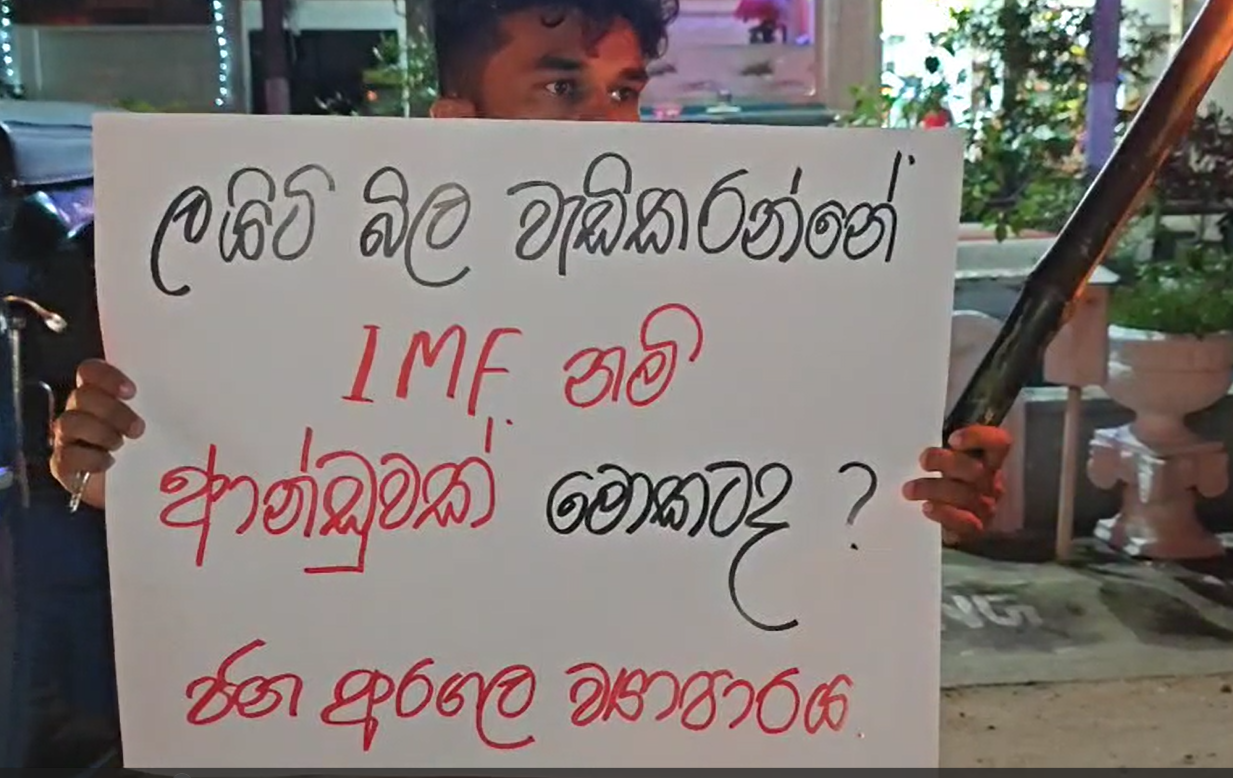 ලයිට් බිල වැඩිකරන්නේ
IMF නම්
ආන්ඩුවක් මොකටද ?
ජන අරගල ව්‍යාපාරය